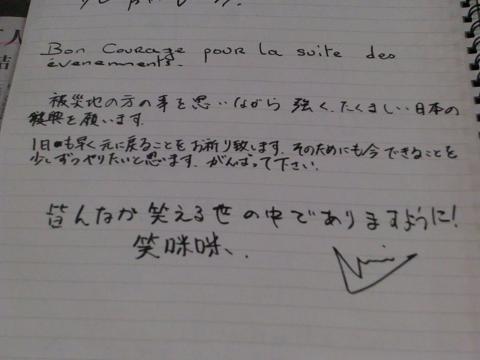 Bon Courage pour la suite des
évenements.
被災地の方の事を思いながら 強く、たくましい日本の
復興を願います。
1日も早く元に戻ることをお祈り致します。そのためにも今できることを
少しずつやりたいと思います。がんばって下さい。
皆んなが笑える世の中でありますように!
笑咪咪、